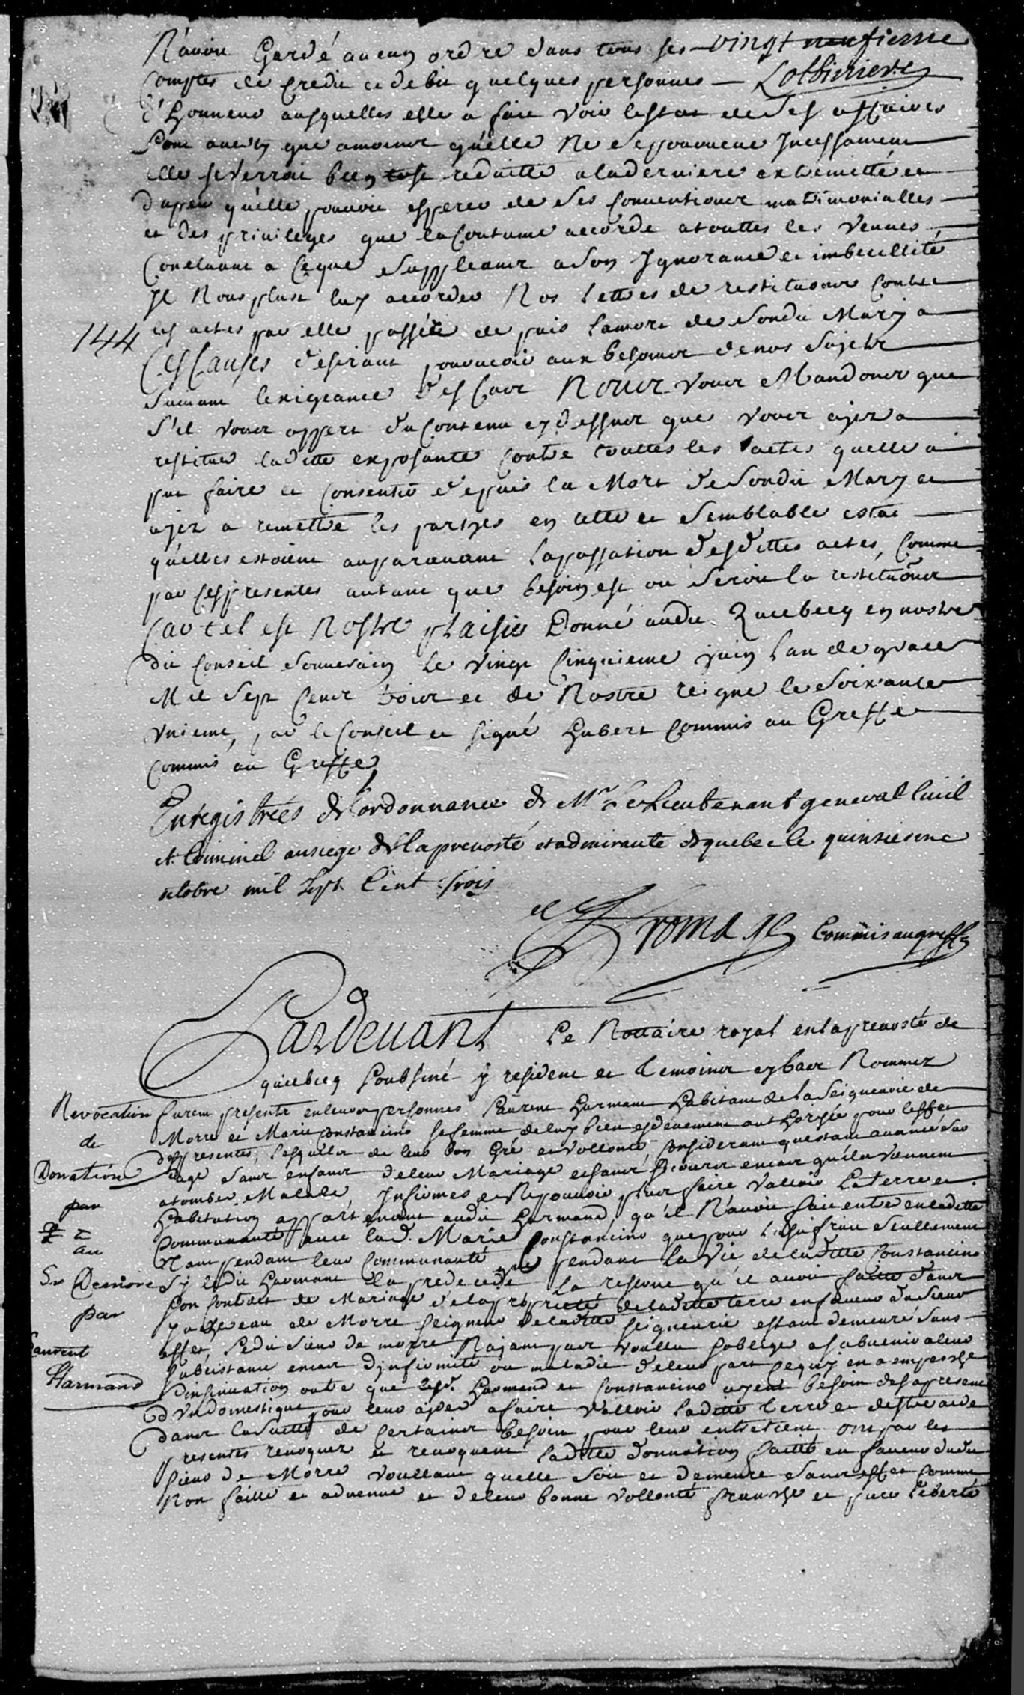 N'avoir Gardé aucun ordre dans tous ses vingt neufieme
comptes de credit et debit quelques personnes Lotbiniere
d'honneur ausquelles elle a fait voir lestat de ses affaires
sont avis que amoins qu'elle ne se pourvoie Incessament
elle se verroit bien tost reduitte a la derniere extremitté et
du peu qu'elle pouvoit esperer de ses conventions matrimonialles
et des privileges que la Coutume accorde a touttes les veuves
Concluant a ce que suppleant a son Ignorance et imbecillité
Il Nous plust luy accorder Nos lettres de restitution contre
144
les actes par elle passée depuis la mort de sondit Mary a
Ces Causes desirant pourvoir aux besoins de nos sujets
suivant lexigeance des cas Nous vous Mandons que
s'il vous appert du contenu cy dessus que vous ayez a
restituer ladite exposante contre touttes les actes quelle a
pu faire et consentir depuis la Mort de sondit Mary et
ayez a remettre les partyes en tel et semblable estat
qu'elles estoient auparavant la passation desdittes actes, comme
par ces presentes autant que besoin est ou seroit la restituons
Car tel est Nostre plaisir Donné audit Quebecq en nostre
dit Conseil Souverain le vingt cinquieme juin l'an de grace
Mil Sept Cent trois et de Nostre reigne le soixante
unieme, par le Conseil et signé hubert commis au Greffe
commis au Greffe
Enregistrées de l'ordonnance de Mr Le Lieutenant general Civil
et Criminel au siege de la prevosté et admirauté de quebec le quinsiesme
octobre mil sept Cent trois
Commis au greffe
Pardevant Le Nottaire royal en la prevosté de
quebecq soubsiné y resident et temoins cy bas Nommez
Revocation
de
Donation
par
au
Sr
par
Laurent
Harmand
furent presents en leurs personnes Laurent harmant habitant de la seigneurie de
Morre et Marie constancino sa femme de luy bien et deuement authorisée pour l'effet
des presentes, lesquels de leur bon Gré et vollonté, considerant questant avancés en
aage sans enfans de leur Mariage et sans secours encas qu'ils viennent
a tomber Malade, Infirmes et ne pouvoir plus faire valloir la terre et
habitation appartenant audit harmand, qu'il N'avoit fait entrer en ladite
communauté avec lad. Marie constancino que pour l'usufruit seullement
tant pendant leur communauté que pendant la vie de laditte constancino
sy ledit harmant la predecede la reserve qu'il avoit faitte dans
son contract de Mariage de la proprieté de laditte terre en faveur du sieur
de Morre seigneur de ladite seigneurie estant demeuré sans
effet, ledit sieur de morre N'ayant pas voullu s'oblige a subvenir a leur
subsistance encas d'infirmité ou maladie de leur part ce qui en a empesché
l'insinuation outre que lesd. harmand et constancino ayent besoin des a present
d'un domestique pour leur ayder a faire valloir laditte terre et destre aidé
dans la suitte de certains besoin pour leur entretient, ont par les
presentes revoquer et revoquent laditte donnation faitte en faveur dudit
sieur de Morre voullant quelle soit et demeure sans effet comme
Non faitte et advenue et de leur bonne vollonté franche et pure liberté